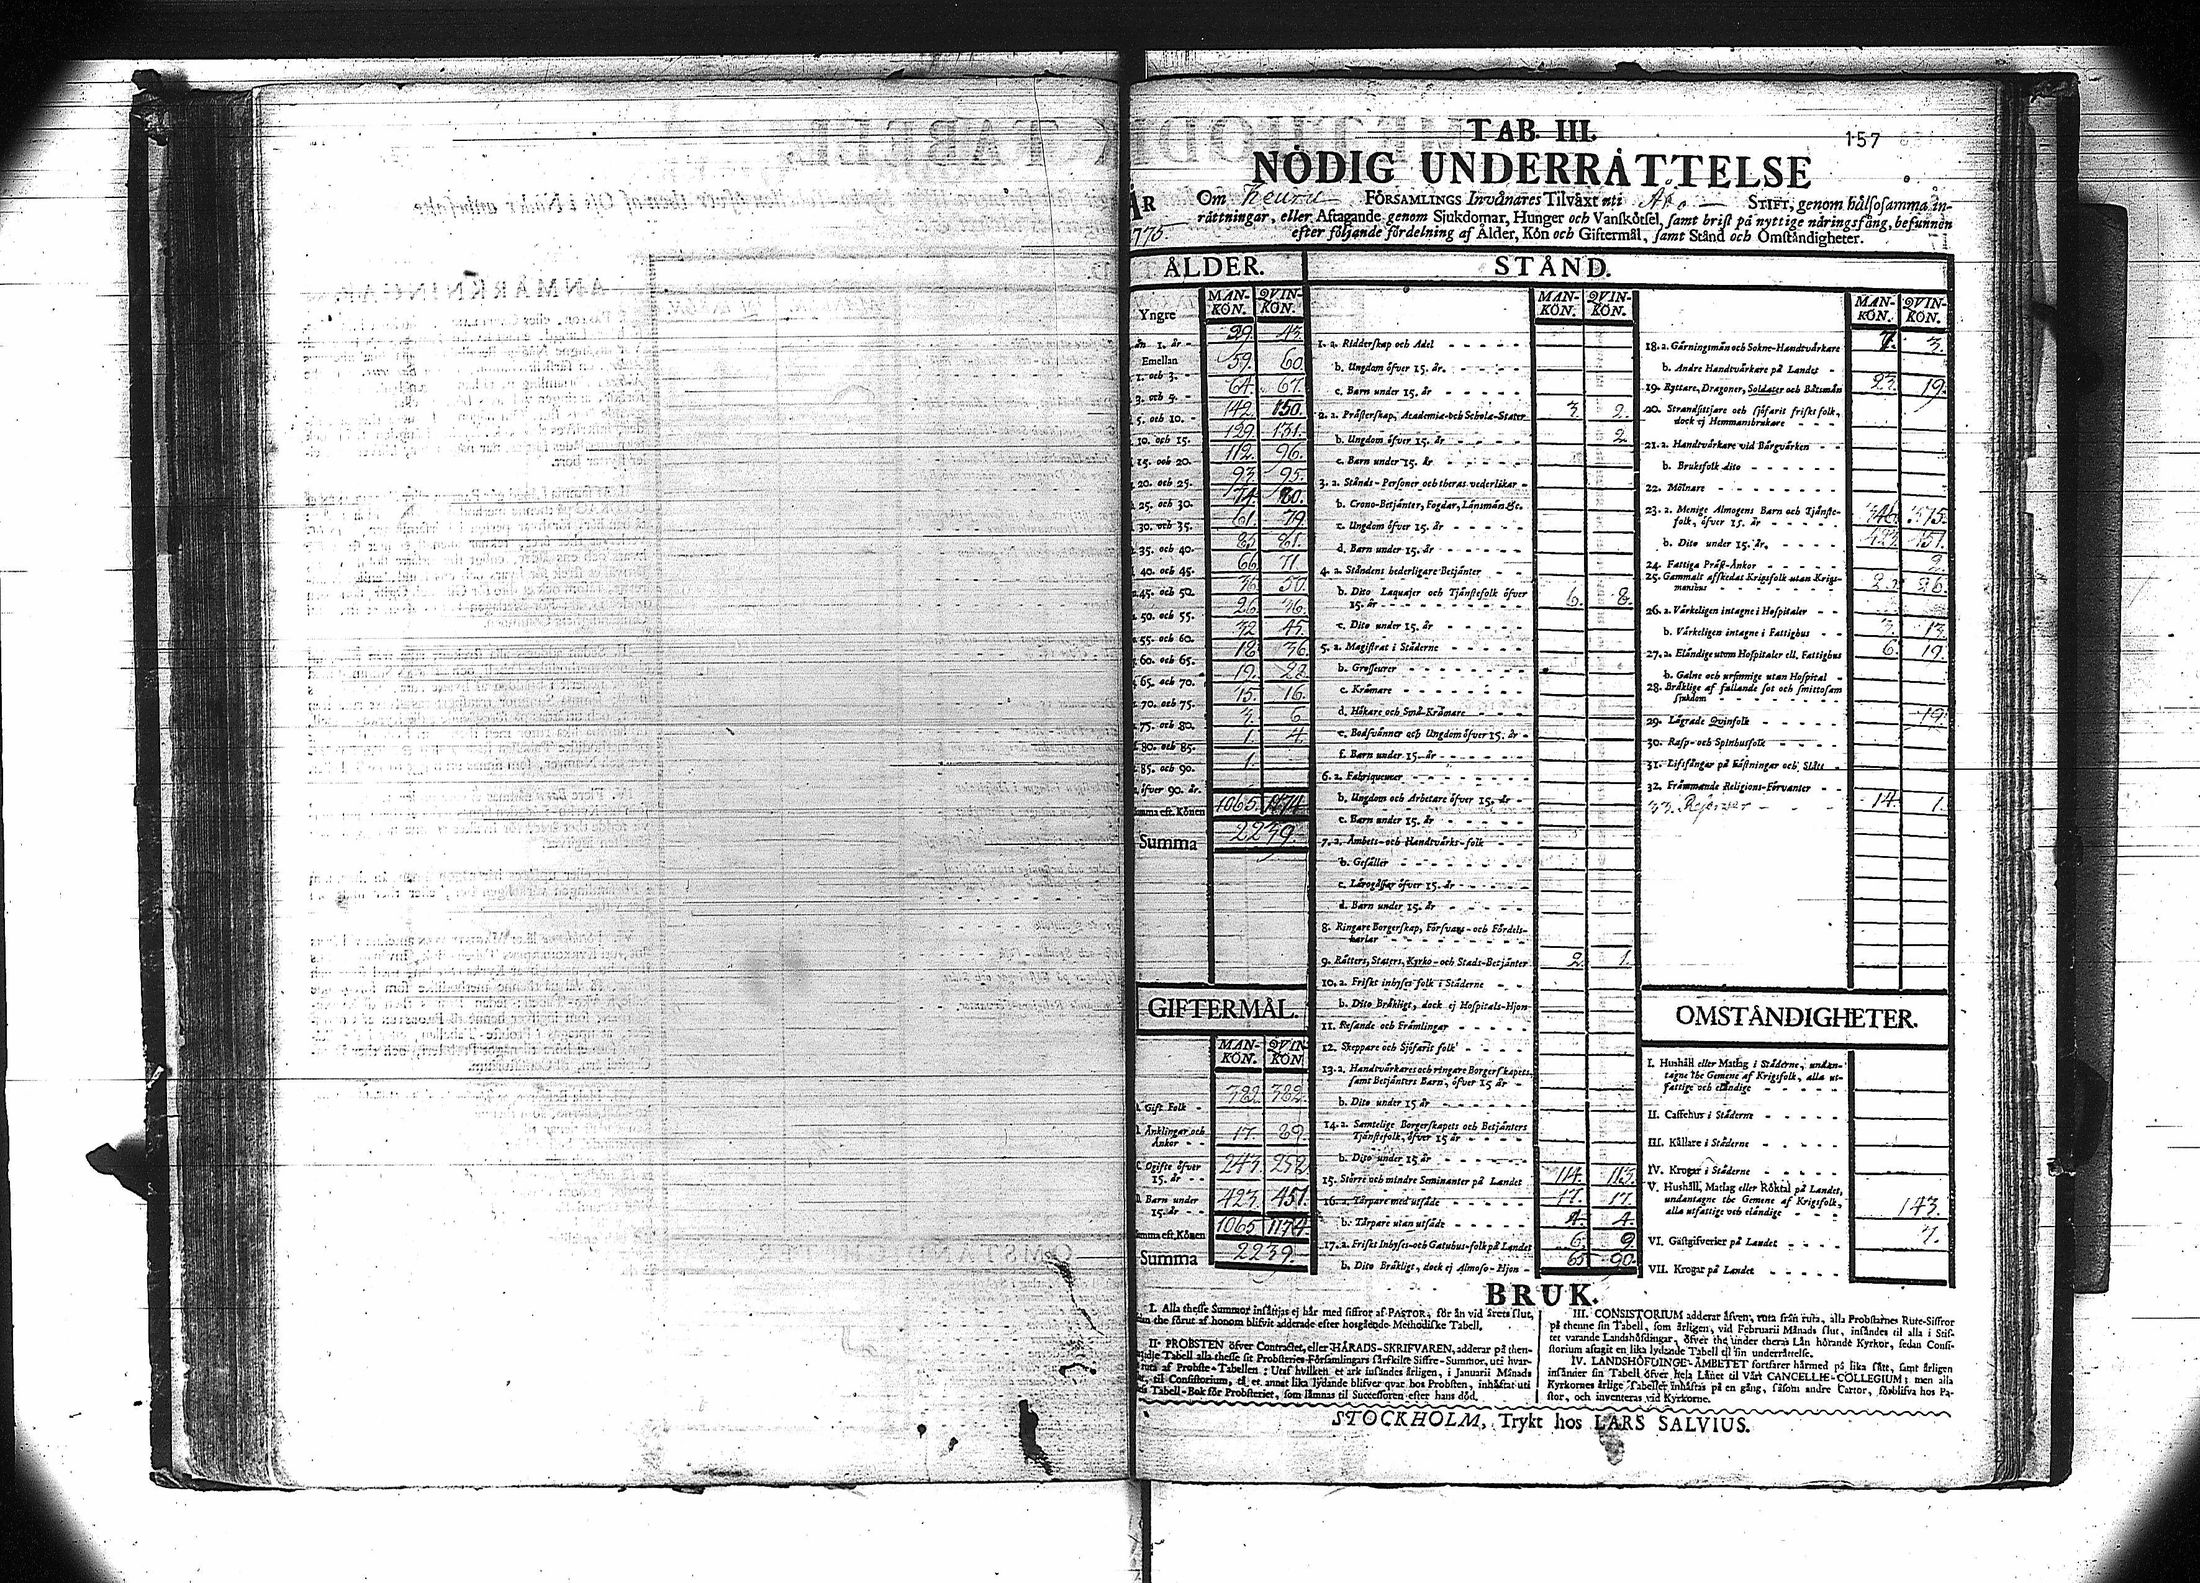 TAB. III.
157
NÖDIG UNDERRÅTTELSE
ÅR
Om Keuru FÖRSAMLINGS Invånares Tilväxt uti Åbo STIFT, genom hälsosamma in-
rättningar, eller Aftagande genom Sjukdomar, Hunger och Vanskötsel, samt brist på nyttige näringsfång, befunnen
775.
efter följande fördelning af Ålder, Kön och Giftermål, samt Stånd och Omständigheter.
ÅLDER.
Yngre MAN-KÖN. QVIN-KÖN.
än 1. år - 43.
Emellan
1. och 3. - 59. 60.
3. och 5. - 64. 67.
5. och 10. - 142. 150.
10. och 15. 129. 131.
15. och 20. 112. 96.
20. och 25. 93. 95.
25. och 30. 74. 80.
30. och 35. 61. 79.
35. och 40. 81.
40. och 45. 66. 71.
45. och 50. 36. 50.
50. och 55. 26. 36.
55. och 60. 32. 45.
60. och 65. 18. 36.
65. och 70. 19. 28.
70. och 75. 15. 16.
75. och 80. 3. 6.
80. och 85. 1. 4.
85. och 90. 1.
öfver 90. år.
Summa eft. Könen 1065. 1174.
Summa 2239.
GIFTERMÅL.
MAN-KÖN. QVIN-KÖN
Gift Folk - 382. 382.
Änklingar och Änkor - - 17. 89.
Ogifte öfver 15. år - - 243. 252.
Barn under 15. år - - 423. 451.
Summa eft. Könen 1065 1174.
Summa 2239.
STÅND.
MAN-KÖN. QVIN-KÖN.
1. a. Ridderskap och Adel
b. Ungdom öfver 15. år.
c. Barn under 15. år
2. a. Prästerskap, Academiæ- och Scholæ-Stater 3. 2.
b. Ungdom öfver 15. år 2.
c. Barn under 15. år
3. a. Stånds-Personer och theras vederlikar
b. Crono-Betjänter, Fogdar, Länsmän &c.
c. Ungdom öfver 15. år
d. Barn under 15. år
4. a. Ståndens hederligare Betjänter
b. Dito Laquajer och Tjänstefolk öfver
15. år 6. 8.
c. Dito under 15. år
5. a. Magistrat i Städerne
b. Grosseurer
c. Krämare
d. Hökare och Små-Krämare
e. Bodsvänner och Ungdom öfver 15. år
f. Barn under 15. år
6. a. Fabriqueurer
b. Ungdom och Arbetare öfver 15. år
c. Barn under 15. år
7. a. Ämbets- och Handtvärks-folk
b. Gesäller
c. Lärogåssar öfver 15. år
d. Barn under 15. år
8. Ringare Borgerskap, Försvars- och Fördels-
karlar
9. Rätters, Staters, Kyrko- och Stads-Betjänter 2. 1.
10. a. Friskt inhyses folk i Städerne
b. Dito Bräkligt, dock ej Hospitals-Hjon
11. Resande och Främlingar
12. Skeppare och Sjöfarit folk
13. a. Handtvärkares och ringare Borgerskapets,
samt Betjänters Barn, öfver 15 år
b. Dito under 15 år
14. a. Samtelige Borgerskapets och Betjänters
Tjänstefolk, öfver 15 år
b. Dito under 15 år
15. Större och mindre Seminanter på Landet 114. 113.
16. a. Tårpare med utsäde 17. 17.
b. Tårpare utan utsäde 4. 4.
17. a. Friskt Inhyses- och Gatuhus-folk på Landet 6. 9
b. Dito Bräkligt, dock ej Almoso-Hjon 90.
MAN-KÖN. QVIN-KÖN.
18. a. Gärningsmän och Sokne-Handtvärkare 7. 3.
b. Andre Handtvärkare på Landet
19. Ryttare, Dragoner, Soldater och Båtsmän 23. 19.
20. Strandsittjare och sjöfarit friskt folk,
dock ej Hemmansbrukare
21. a. Handtvärkare vid Bärgvärken
b. Bruksfolk dito
22. Mölnare
23. a. Menige Almogens Barn och Tjänste-
folk, öfver 15. år 375.
b. Dito under 15. år. 423. 451.
24. Fattiga Präst-Änkor 2.
25. Gammalt afskedat Krigsfolk utan Krigs-
manshus 26.
26. a. Värkeligen intagne i Hospitaler
b. Värkeligen intagne i Fattighus 3. 13.
27. a. Eländige utom Hospitaler ell. Fattighus 6. 19.
b. Galne och ursinnige utan Hospital
28. Bräklige af fallande sot och smittosam
sjukdom
29. Lägrade Qvinfolk 19.
30. Rasp- och Spinhusfolk
31. Lifsfångar på Fästningar och Slått
32. Främmande Religions-Förvanter
33. 14. 1.
OMSTÄNDIGHETER.
I. Hushåll eller Matlag i Städerne, undan-
tagne the Gemene af Krigsfolk, alla ut-
fattige och eländige
II. Caffehus i Städerne
III. Källare i Städerne
IV. Krogar i Städerne
V. Hushåll, Matlag eller Röktal på Landet,
undantagne the Gemene af Krigsfolk,
alla utfattige och eländige 143.
VI. Gästgifverier på Landet 7.
VII. Krogar på Landet
BRUK.
I. Alla thesse Summor insättjas ej här med siffror af PASTOR, för än vid årets slut,
the förut af honom blifvit adderade efter hosgående Methodiske Tabell.
II. PROBSTEN öfver Contractet, eller HÄRADS-SKRIFVAREN, adderar på then-
Tabell alla thesse sit Probsteries Församlingars särskilte Siffre-Summor, uti hvar
ruta af Probste-Tabellen: Utaf hvilken et ark insändes årligen, i Januarii Månads
til Consistorium, et annat lika lydande blifver qvar hos Probsten, inhäftat uti
Tabell-Bok för Probsteriet, som lämnas til Successoren efter hans död.
III. CONSISTORIUM adderar äfven, ruta från ruta, alla Probstarnes Rute-Siffror
på thenne sin Tabell, som årligen, vid Februarii Månads slut, insändes til alla i Stif-
tet varande Landshöfdingar, öfver the under thera Län hörande Kyrkor, sedan Consi-
storium aftagit en lika lydande Tabell til sin underrättelse.
IV. LANDSHÖFDINGE-ÄMBETET fortfarer härmed på lika sätt, samt årligen
insänder sin Tabell öfver hela Länet til Vårt CANCELLIE-COLLEGIUM; men alla
Kyrkornes årlige Tabeller inhäftas på en gång, såsom andre Cartor, förblifva hos Pa-
stor, och inventeras vid Kyrkorne.
STOCKHOLM, Trykt hos LARS SALVIUS.